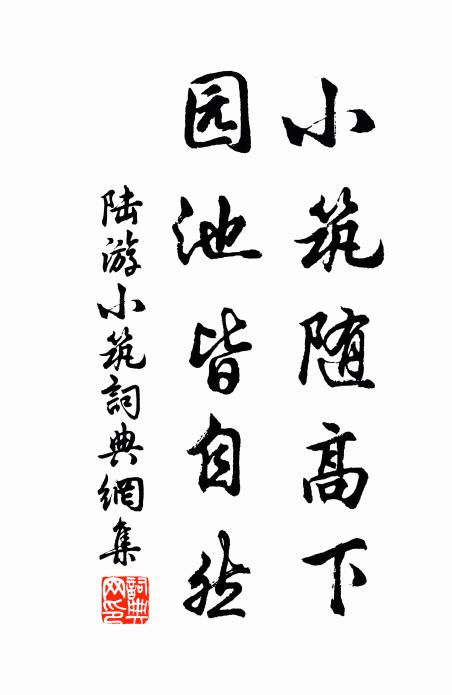 小筑随高下
园池皆自然
陆游小筑詞典網集
詞典网印